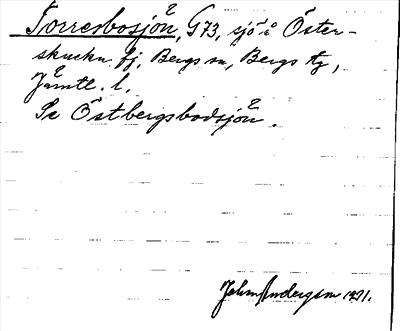 Torresbosjön, G73, sjö å Öster-
skuckn. fj, Bergs sn, Bergs tg,
Jämtl. l.
Se Östbergsbodsjön.
John Andersson 1971.